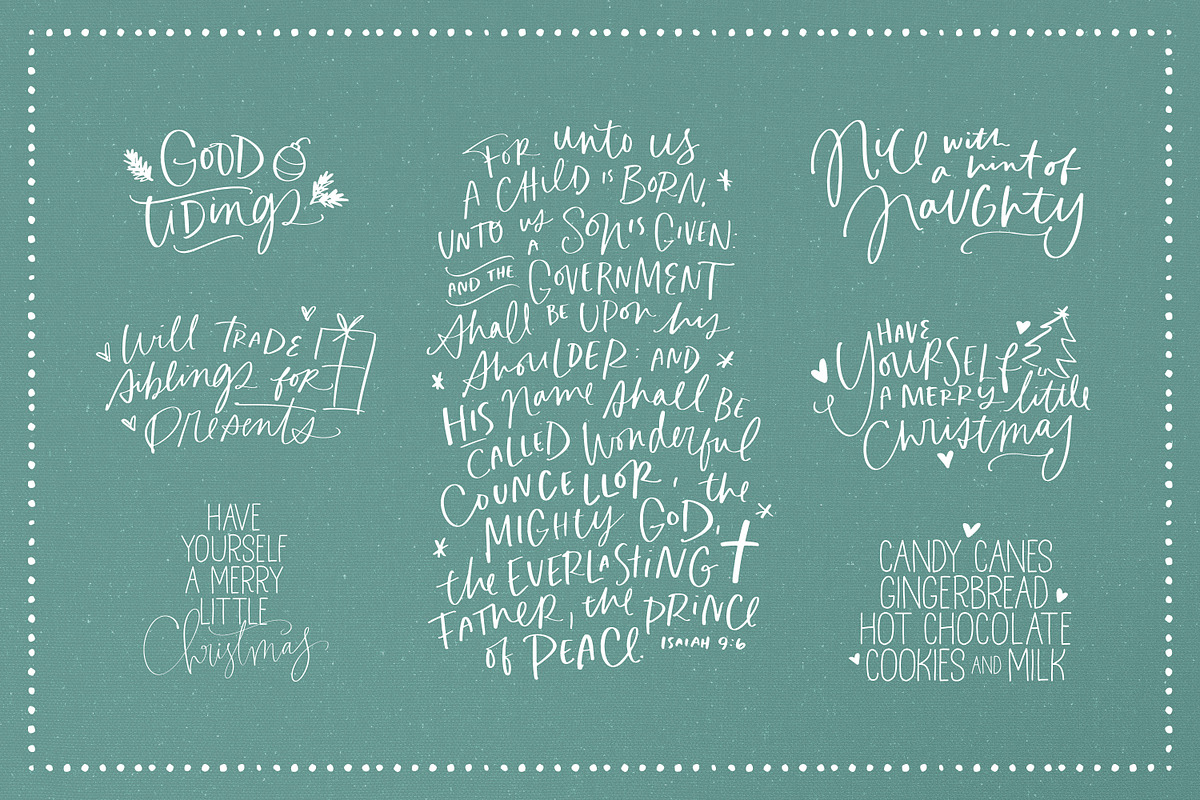 GOOD
tiDings
Will TRADE
siblings for
Presents
HAVE
YOURSELF
A MERRY
LITTLE
Christmas
FOR unto us
A CHILD IS BORN,
UNTO us A SON IS GIVEN:
AND THE GOVERNMENT
shall BE UPON his
shoulder: AND
HIS name shall BE
CALLED Wonderful
COUNCELLOR, the
MIGHTY GOD,
the EVERLASTING
FATHER, the PRINCE
of PEACE. ISAIAH 9:6
Nice with
a hint of
Naughty
HAVE
YOURSELF
A MERRY little
Christmas
CANDY CANES
GINGERBREAD
HOT CHOCOLATE
COOKIES AND MILK